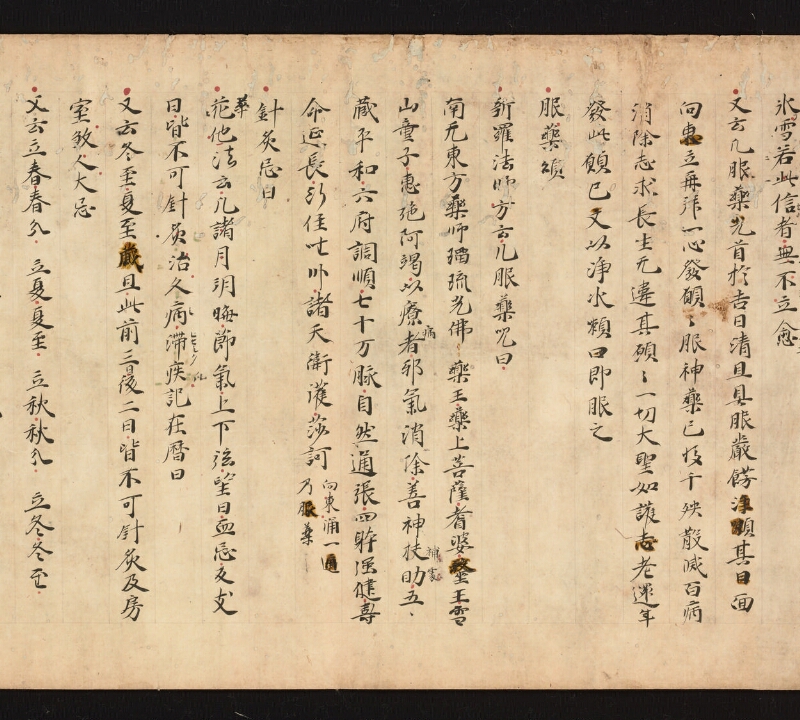 氷雪若此信者無不立愈
又云凡服藥先首於吉日清旦具服嚴餝浄頭其日面
向東立再拜一心發願〻服神藥已後千殃散滅百病
消除志求長生无違其願〻一切大聖如誰志老還年
發此願已又以淨水漱口即服之
服藥頌
新羅法師方云凡服藥咒曰
南无東方藥師瑠琉光佛藥王藥上菩薩耆婆醫王雪
山童子惠施阿竭以療病者邪氣消除善神扶助五
蔵平和六府調順七十万脉自然通張四躰强健壽
命延長行住坐卧諸天衛護莎訶 向東誦一遍
乃服藥
針灸忌日
華
花他法云凡諸月朔晦節氣上下弦望日血忌反支
日皆不可針灸治久病滞疾記在暦日
又云冬至夏至歳旦此前三日後二日皆不可針灸及房
室致人大忌
又云立春春分 立夏夏至 立秋秋分 立冬冬至